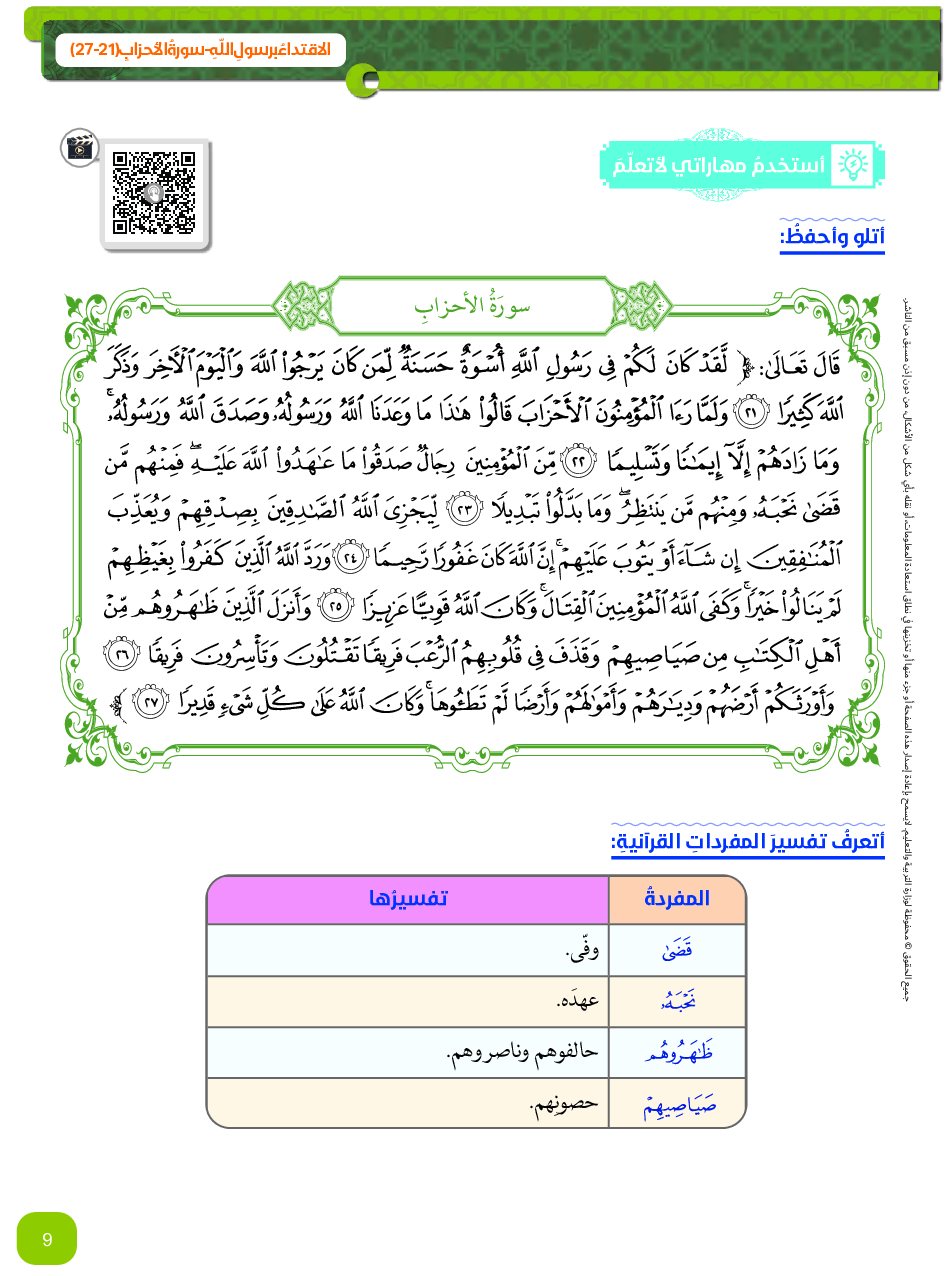 الاقتداءُ برسولِ اللّٰهِ-سورةُ الأحزابِ (21-27)
أستخدمُ مهاراتي لأتعلّمَ
أتلو وأحفظُ:
سورَةُ الأحزابِ
قَالَ تَعَالَىٰ: ﴿ لَّقَدۡ كَانَ لَكُمۡ فِي رَسُولِ ٱللَّهِ أُسۡوَةٌ حَسَنَةٞ لِّمَن كَانَ يَرۡجُواْ ٱللَّهَ وَٱلۡيَوۡمَ ٱلۡأٓخِرَ وَذَكَرَ
ٱللَّهَ كَثِيرٗا ٢١ وَلَمَّا رَءَا ٱلۡمُؤۡمِنُونَ ٱلۡأَحۡزَابَ قَالُواْ هَٰذَا مَا وَعَدَنَا ٱللَّهُ وَرَسُولُهُۥ وَصَدَقَ ٱللَّهُ وَرَسُولُهُۥۚ
وَمَا زَادَهُمۡ إِلَّآ إِيمَٰنٗا وَتَسۡلِيمٗا ٢٢ مِّنَ ٱلۡمُؤۡمِنِينَ رِجَالٞ صَدَقُواْ مَا عَٰهَدُواْ ٱللَّهَ عَلَيۡهِۖ فَمِنۡهُم مَّن
قَضَىٰ نَحۡبَهُۥ وَمِنۡهُم مَّن يَنتَظِرُۖ وَمَا بَدَّلُواْ تَبۡدِيلٗا ٢٣ لِّيَجۡزِيَ ٱللَّهُ ٱلصَّٰدِقِينَ بِصِدۡقِهِمۡ وَيُعَذِّبَ
ٱلۡمُنَٰفِقِينَ إِن شَآءَ أَوۡ يَتُوبَ عَلَيۡهِمۡۚ إِنَّ ٱللَّهَ كَانَ غَفُورٗا رَّحِيمٗا ٢٤ وَرَدَّ ٱللَّهُ ٱلَّذِينَ كَفَرُواْ بِغَيۡظِهِمۡ
لَمۡ يَنَالُواْ خَيۡرٗاۚ وَكَفَى ٱللَّهُ ٱلۡمُؤۡمِنِينَ ٱلۡقِتَالَۚ وَكَانَ ٱللَّهُ قَوِيًّا عَزِيزٗا ٢٥ وَأَنزَلَ ٱلَّذِينَ ظَٰهَرُوهُم مِّنۡ
أَهۡلِ ٱلۡكِتَٰبِ مِن صَيَاصِيهِمۡ وَقَذَفَ فِي قُلُوبِهِمُ ٱلرُّعۡبَ فَرِيقٗا تَقۡتُلُونَ وَتَأۡسِرُونَ فَرِيقٗا ٢٦
وَأَوۡرَثَكُمۡ أَرۡضَهُمۡ وَدِيَٰرَهُمۡ وَأَمۡوَٰلَهُمۡ وَأَرۡضٗا لَّمۡ تَطَـُٔوهَاۚ وَكَانَ ٱللَّهُ عَلَىٰ كُلِّ شَيۡءٖ قَدِيرٗا ٢٧ ﴾
أتعرفُ تفسيرَ المفرداتِ القرآنيةِ:
المفردةُ تفسيرُها
قَضَىٰ وفّى.
نَحۡبَهُۥ عهدَه.
ظَٰهَرُوهُم حالفوهم وناصروهم.
صَيَاصِيهِمۡ حصونِهم.
جميع الحقوق © محفوظة لوزارة التربية والتعليم. لا يسمح بإعادة إصدار هذه الصفحة أو جزء منها أو تخزينها في نطاق استعادة المعلومات، أو نقله بأي شكل من الأشكال، من دون إذن مسبق من الناشر.
9